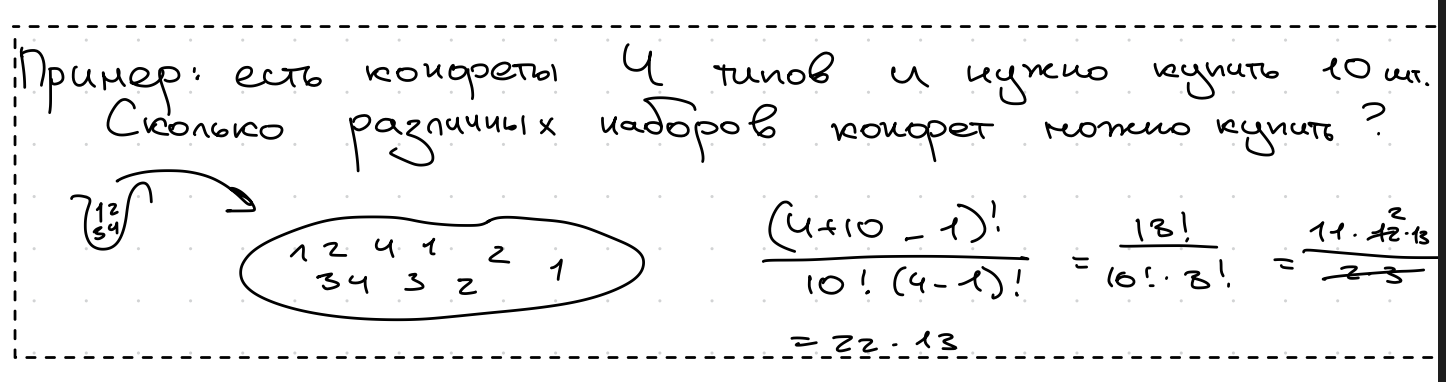 Пример: есть конфеты 4 типов и нужно купить 10 шт.
Сколько различных наборов конфет можно купить?
12
34
1 2 4 1 2 1
34 3 2
(4+10-1)! / 10! (4-1)! = 13! / 10! · 3! = 11 · 12 2 · 13 / 2 · 3
= 22 · 13